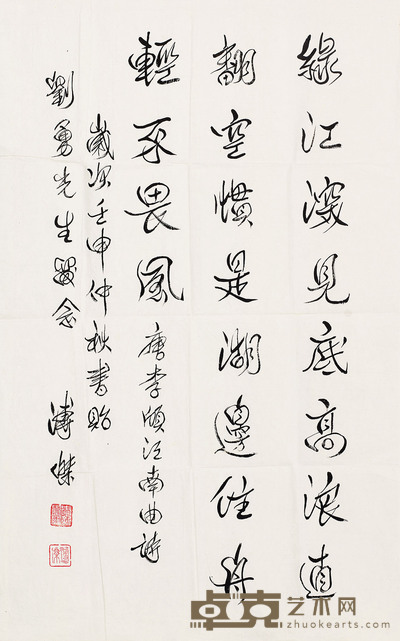 綠江深見底高浪直
翻空慣是湖邊住舟
輕不畏風 唐李頎江南曲詩
歲次壬申仲秋書貽
劉勇先生留念 溥傑
卓克艺术网
zhuokearts.com